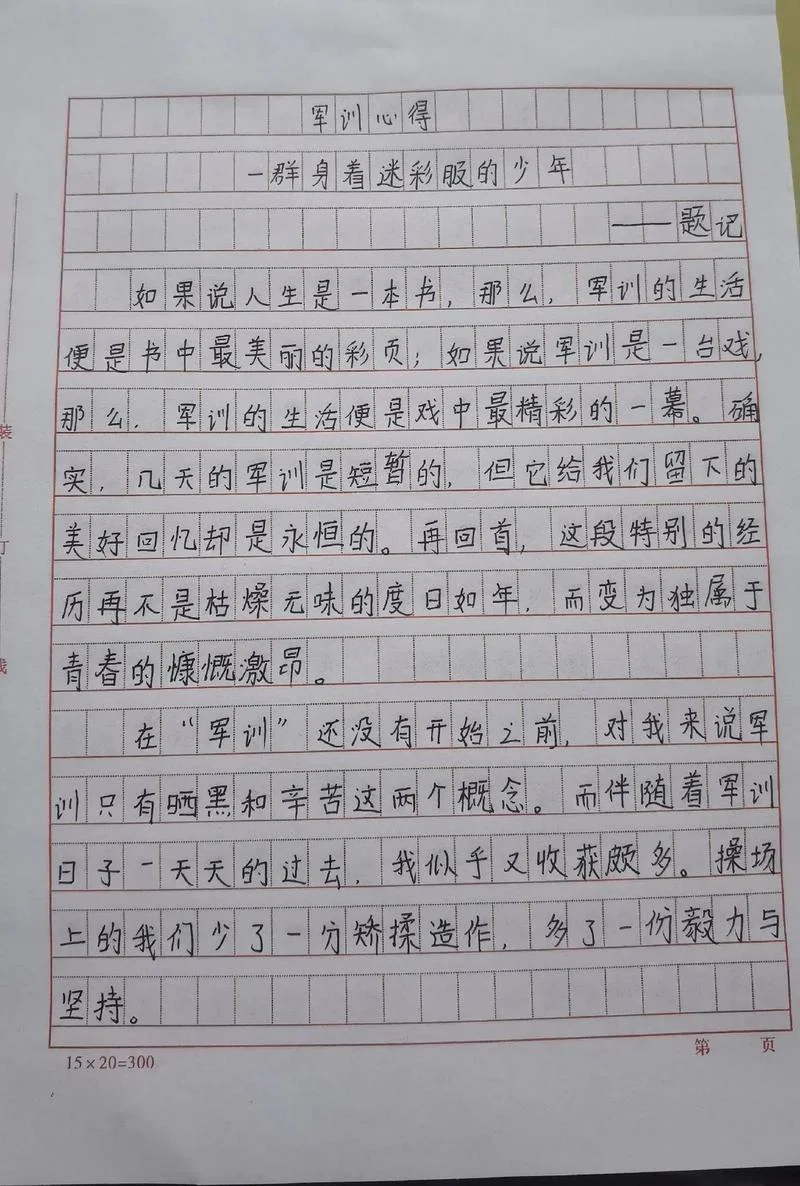 军训心得
一群身着迷彩服的少年
——题记
如果说人生是一本书,那么,军训的生活
便是书中最美丽的彩页;如果说军训是一台戏,
那么.军训的生活便是戏中最精彩的一幕。确
实,几天的军训是短暂的,但它给我们留下的
美好回忆却是永恒的。再回首,这段特别的经
历再不是枯燥无味的度日如年,而变为独属于
青春的慷慨激昂。
在“军训”还没有开始之前,对我来说军
训只有晒黑和辛苦这两个概念。而伴随着军训
日子一天天的过去,我似乎又收获颇多。操场
上的我们少了一分矫揉造作,多了一份毅力与
坚持。
15×20=300
第 页
装
订
线